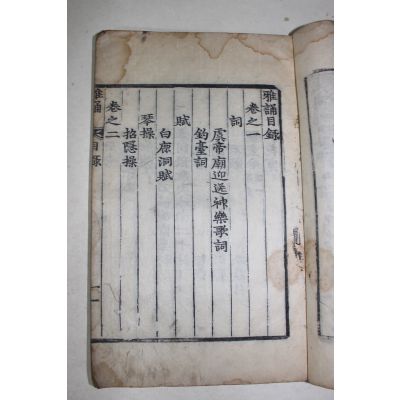 雅誦目錄
卷之一
詞
虞帝廟迎送神樂歌詞
釣臺詞
賦
白鹿洞賦
琴操
招隱操
卷之二
雅誦
目錄
一